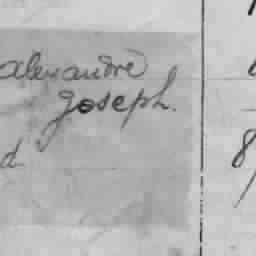 alexandre
Joseph.
d
8/